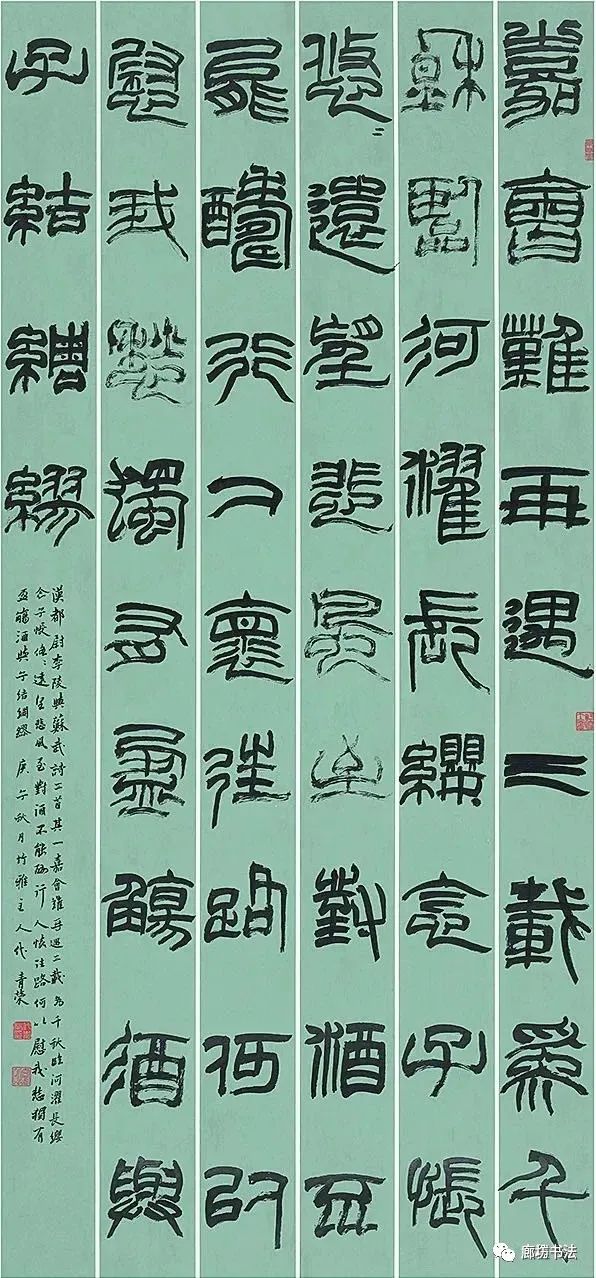 嘉會難再遇三載為千
秋臨河濯長纓念子悵
悠〻遠望悲風至對酒不
能酬行人懷往路何以
慰我愁獨有盈觴酒與
子結綢繆
漢都尉李陵與蘇武詩三首其一嘉會難再遇三載為千秋臨河濯長纓
念子悵悠〻遠望悲風至對酒不能酬行人懷往路何以慰我愁獨有
盈觴酒與子結綢繆 庚午秋月竹雅主人代青榮
廊塄书法